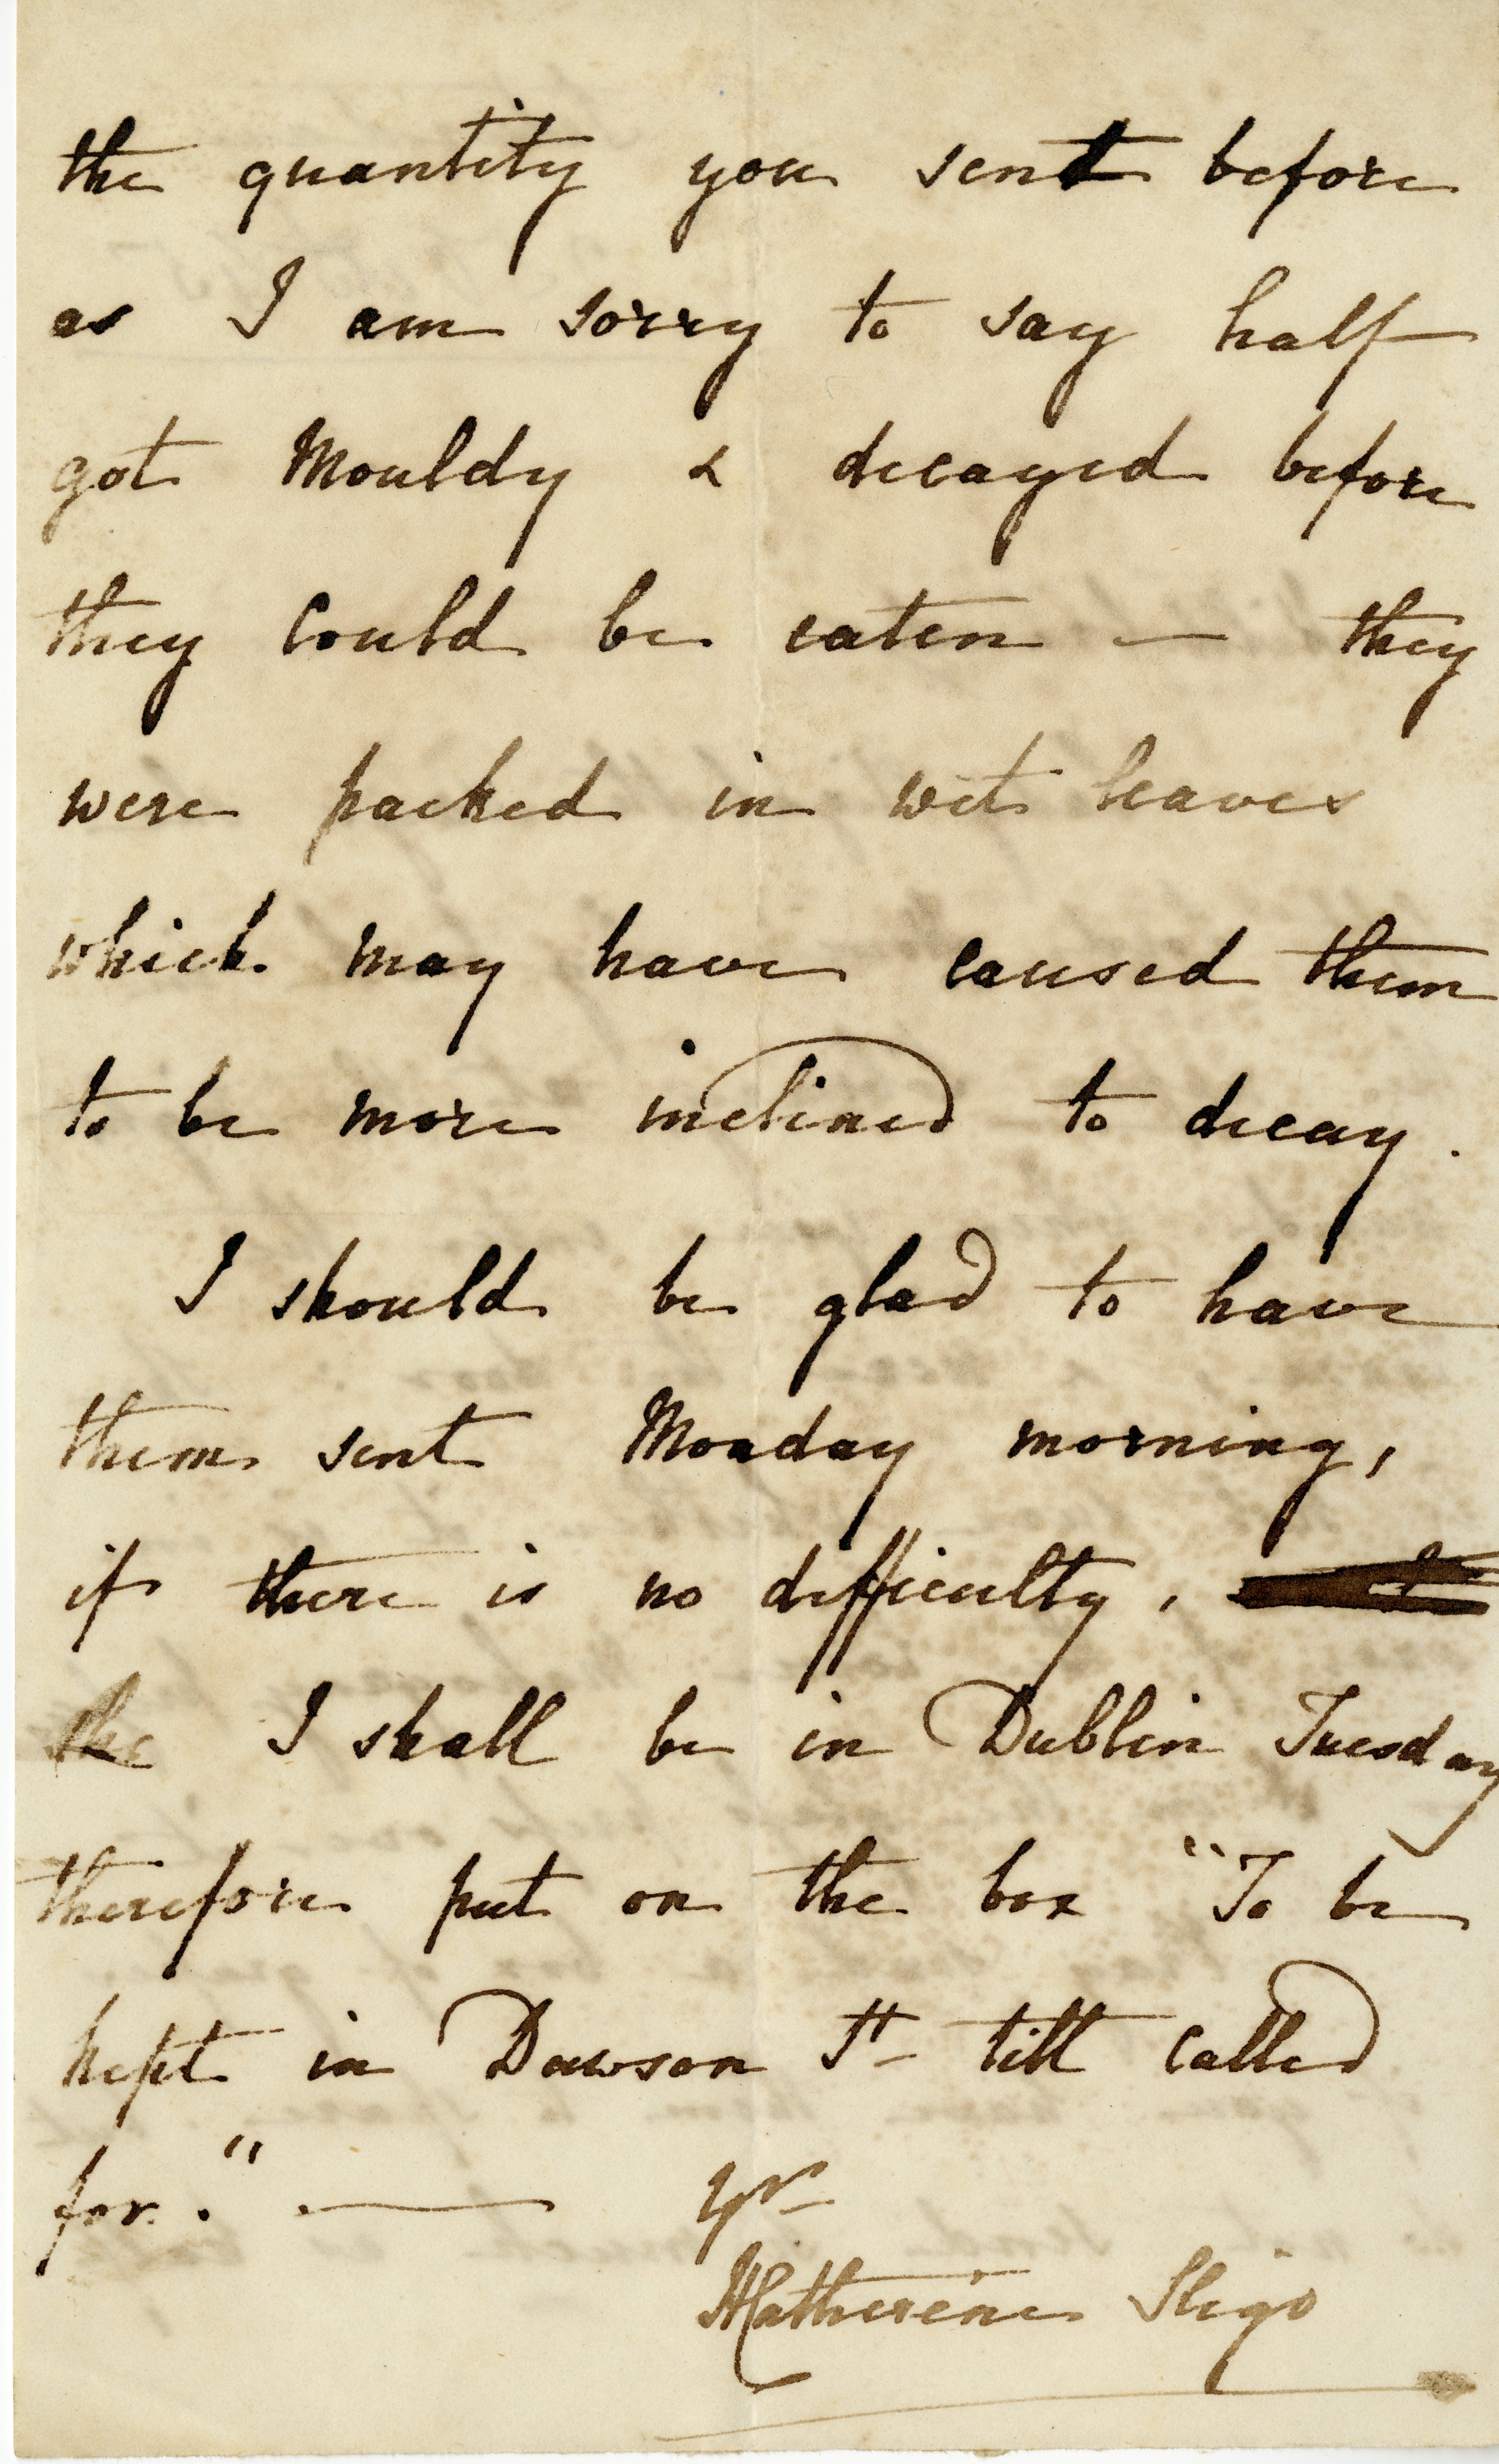 the quantity you sent before
as I am sorry to say half
got Mouldy & decayed before
they could be eaten — they
were packed in wet leaves
which may have caused them
to be more inclined to decay.
I should be glad to have
them sent Monday morning,
if there is no difficulty,
the I shall be in Dublin Tuesday
therefore put on the box "To be
kept in Dawson St till called
for." — Yrs
Katherine Sligo